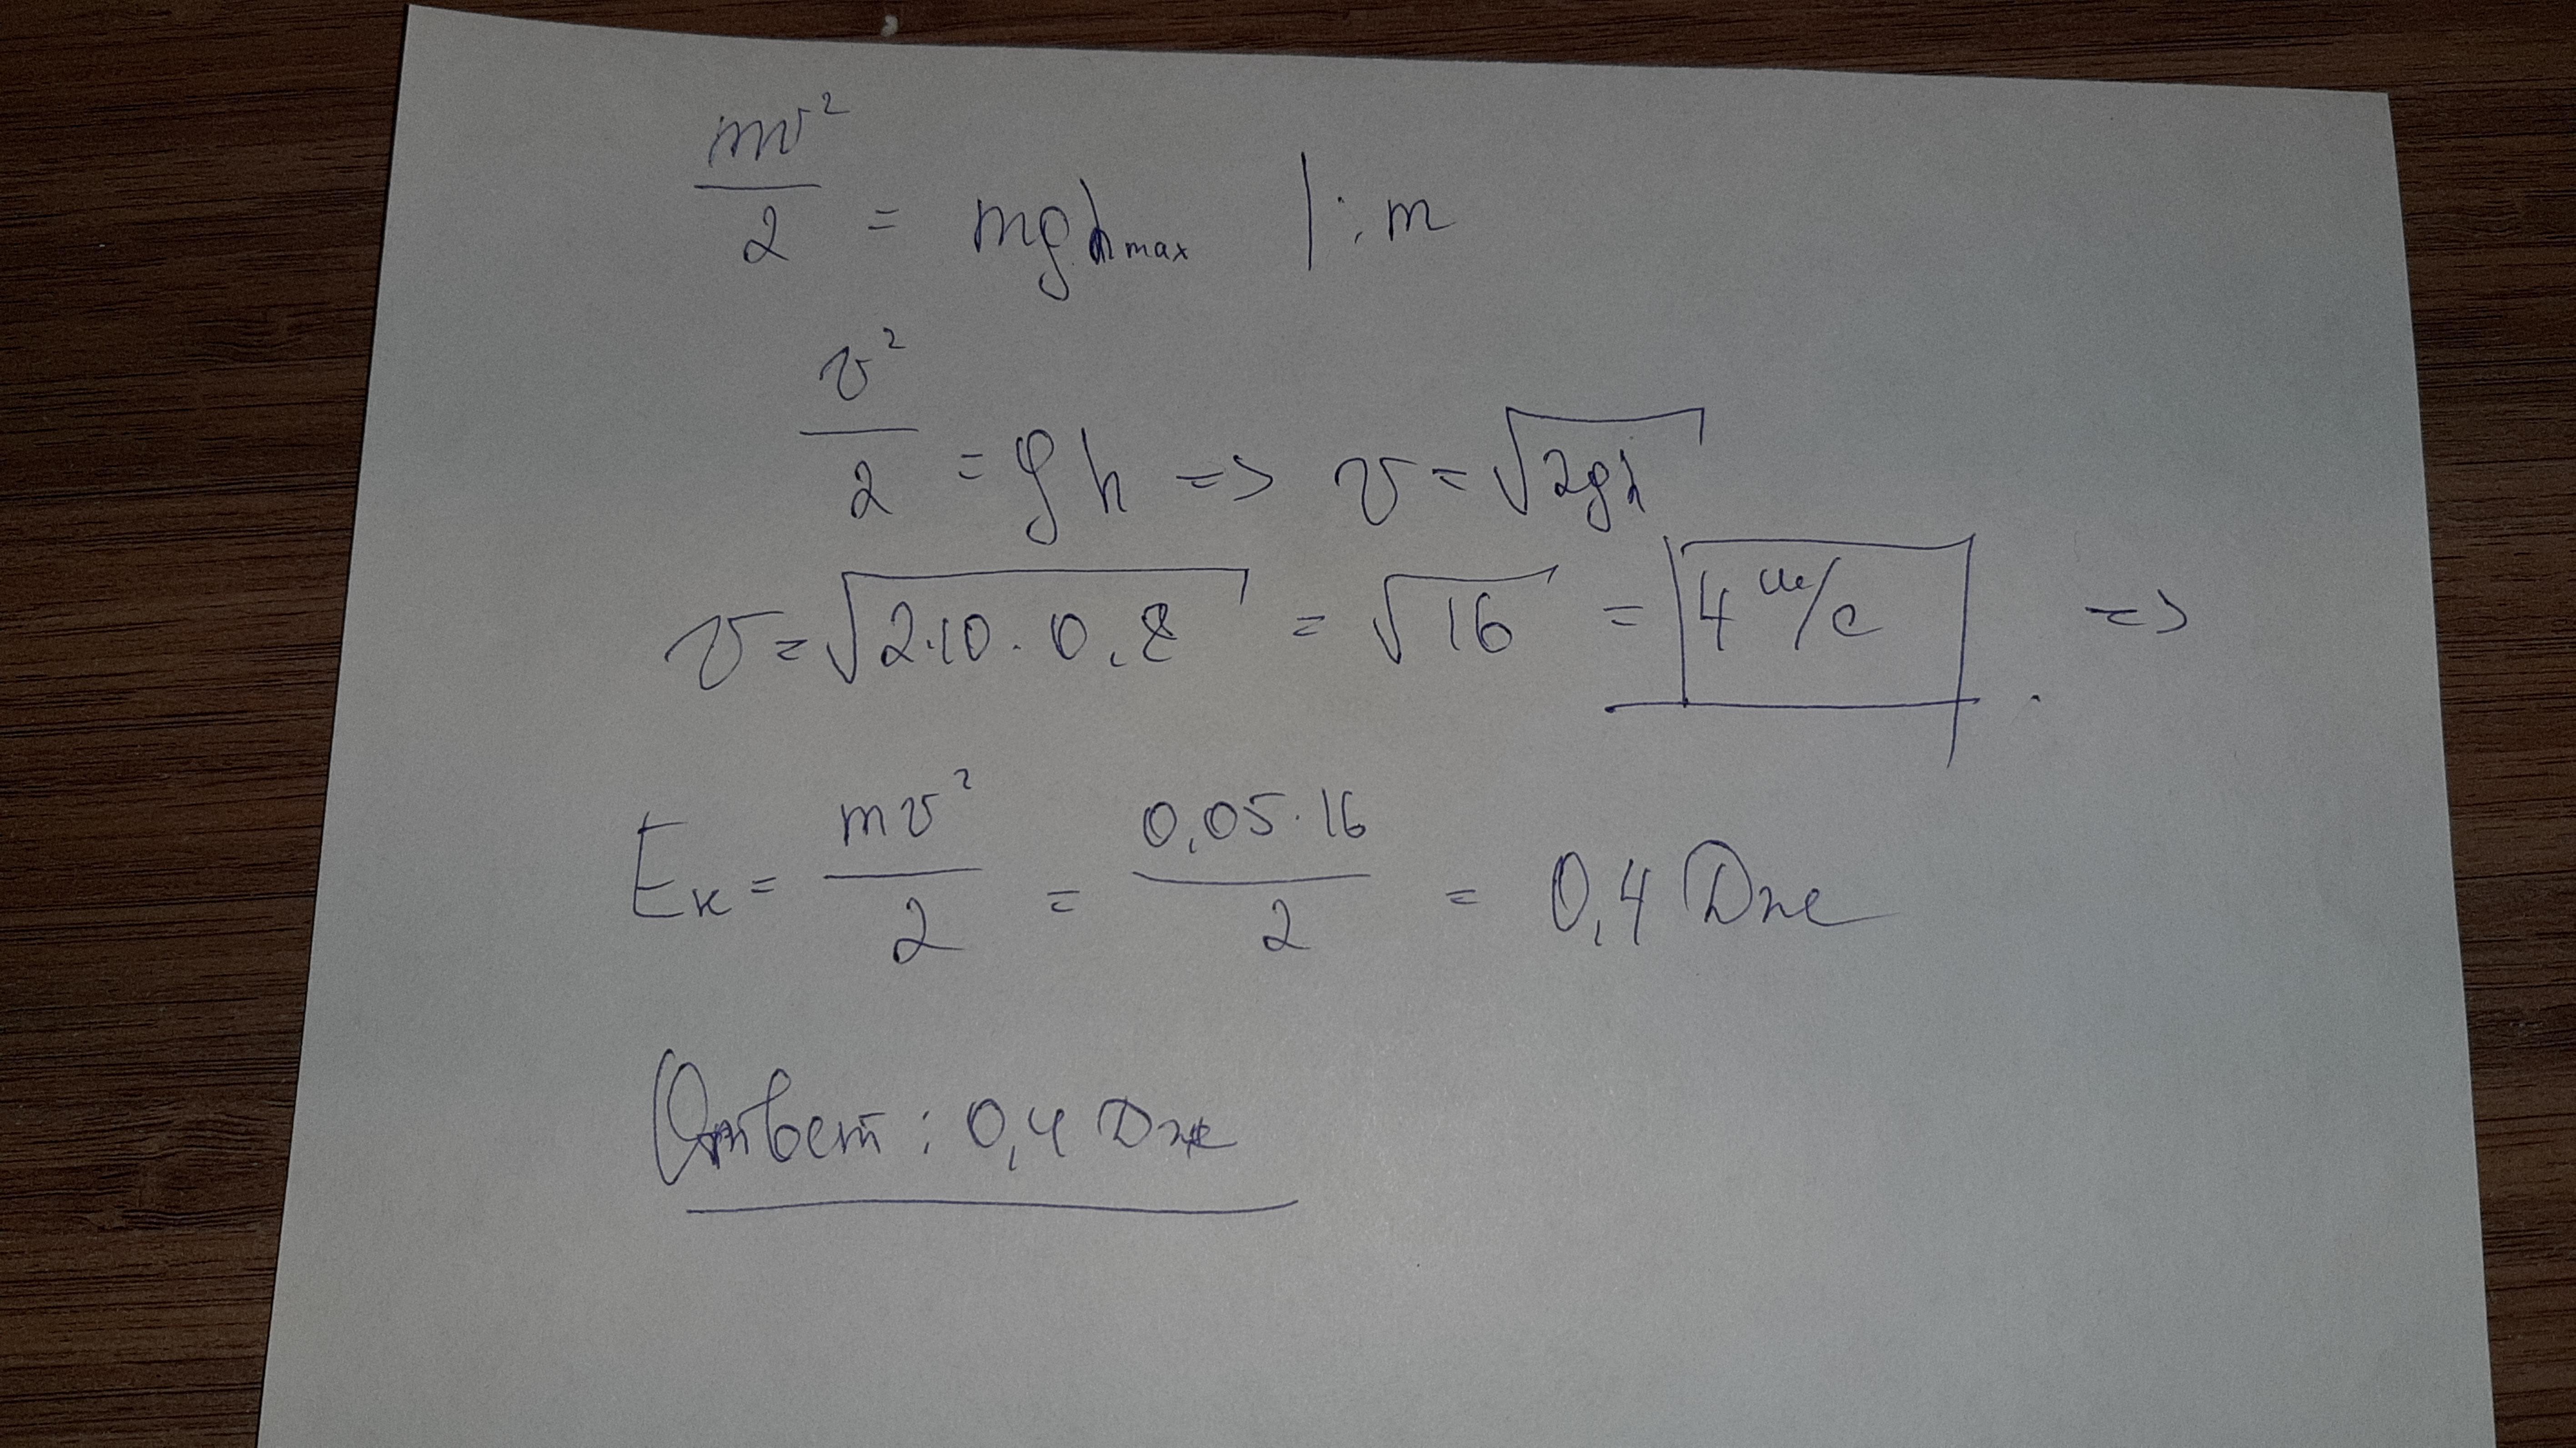 mv²/2 = mgh max | : m
v²/2 = gh => v = √2gh
v = √2·10·0,8 = √16 = 4 м/с =>
Eк = mv²/2 = 0,05·16/2 = 0,4 Дж
Ответ: 0,4 Дж